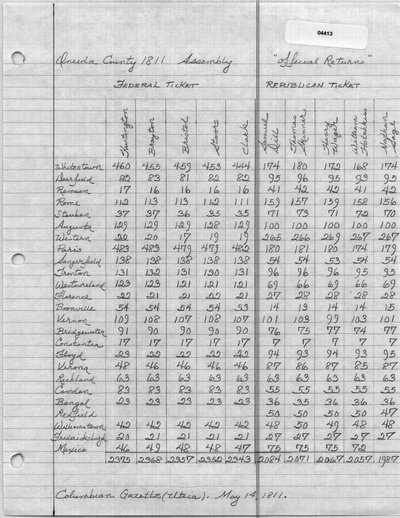 04413
Oneida County 1811 Assembly "Official Returns"
FEDERAL TICKET REPUBLICAN TICKET
Huntington Brayton Bristol Stoors Clark Samuel Dill Thomas Skinner Henry Wager William Hotchkiss Nathan Sage
Whitestown 460 455 459 453 444 174 180 172 168 174
Deerfield 82 83 81 82 82 95 96 95 93 95
Remsen 17 16 16 16 16 41 42 42 41 42
Rome 112 113 113 112 111 159 157 159 158 156
Steuben 37 37 36 35 35 71 73 71 72 70
Augusta 129 129 129 128 129 100 100 100 100 100
Western 22 20 17 19 19 265 266 269 267 267
Paris 483 483 479 477 482 180 181 180 174 179
Sangerfield 138 138 138 138 138 54 54 53 54 54
Trenton 131 132 131 130 131 96 96 96 95 95
Westmoreland 123 123 121 121 121 69 66 69 66 69
Florence 22 21 21 22 21 27 28 28 28 28
Boonville 54 54 54 54 53 14 13 14 14 15
Vernon 109 108 107 108 107 101 103 99 103 101
Bridgewater 91 90 90 90 90 76 75 77 74 77
Constantia 17 17 17 17 17 7 7 7 7 7
Floyd 23 22 22 22 22 94 93 94 93 95
Verona 48 46 46 46 46 87 86 87 85 87
Richland 63 63 63 63 63 63 63 63 63 63
Camden 83 83 83 83 83 55 55 55 55 55
Bengal 23 23 23 23 23 36 35 36 36 36
Redfield 50 50 50 50 47
Williamstown 42 42 42 42 42 48 50 49 48 48
Fredericksburg 20 21 21 21 21 27 27 27 27 27
Mexico 46 49 48 48 47 75 75 75 72
2375 2368 2357 2350 2343 2084 2071 2067 2057 1987
Columbian Gazette (Utica). May 14, 1811.